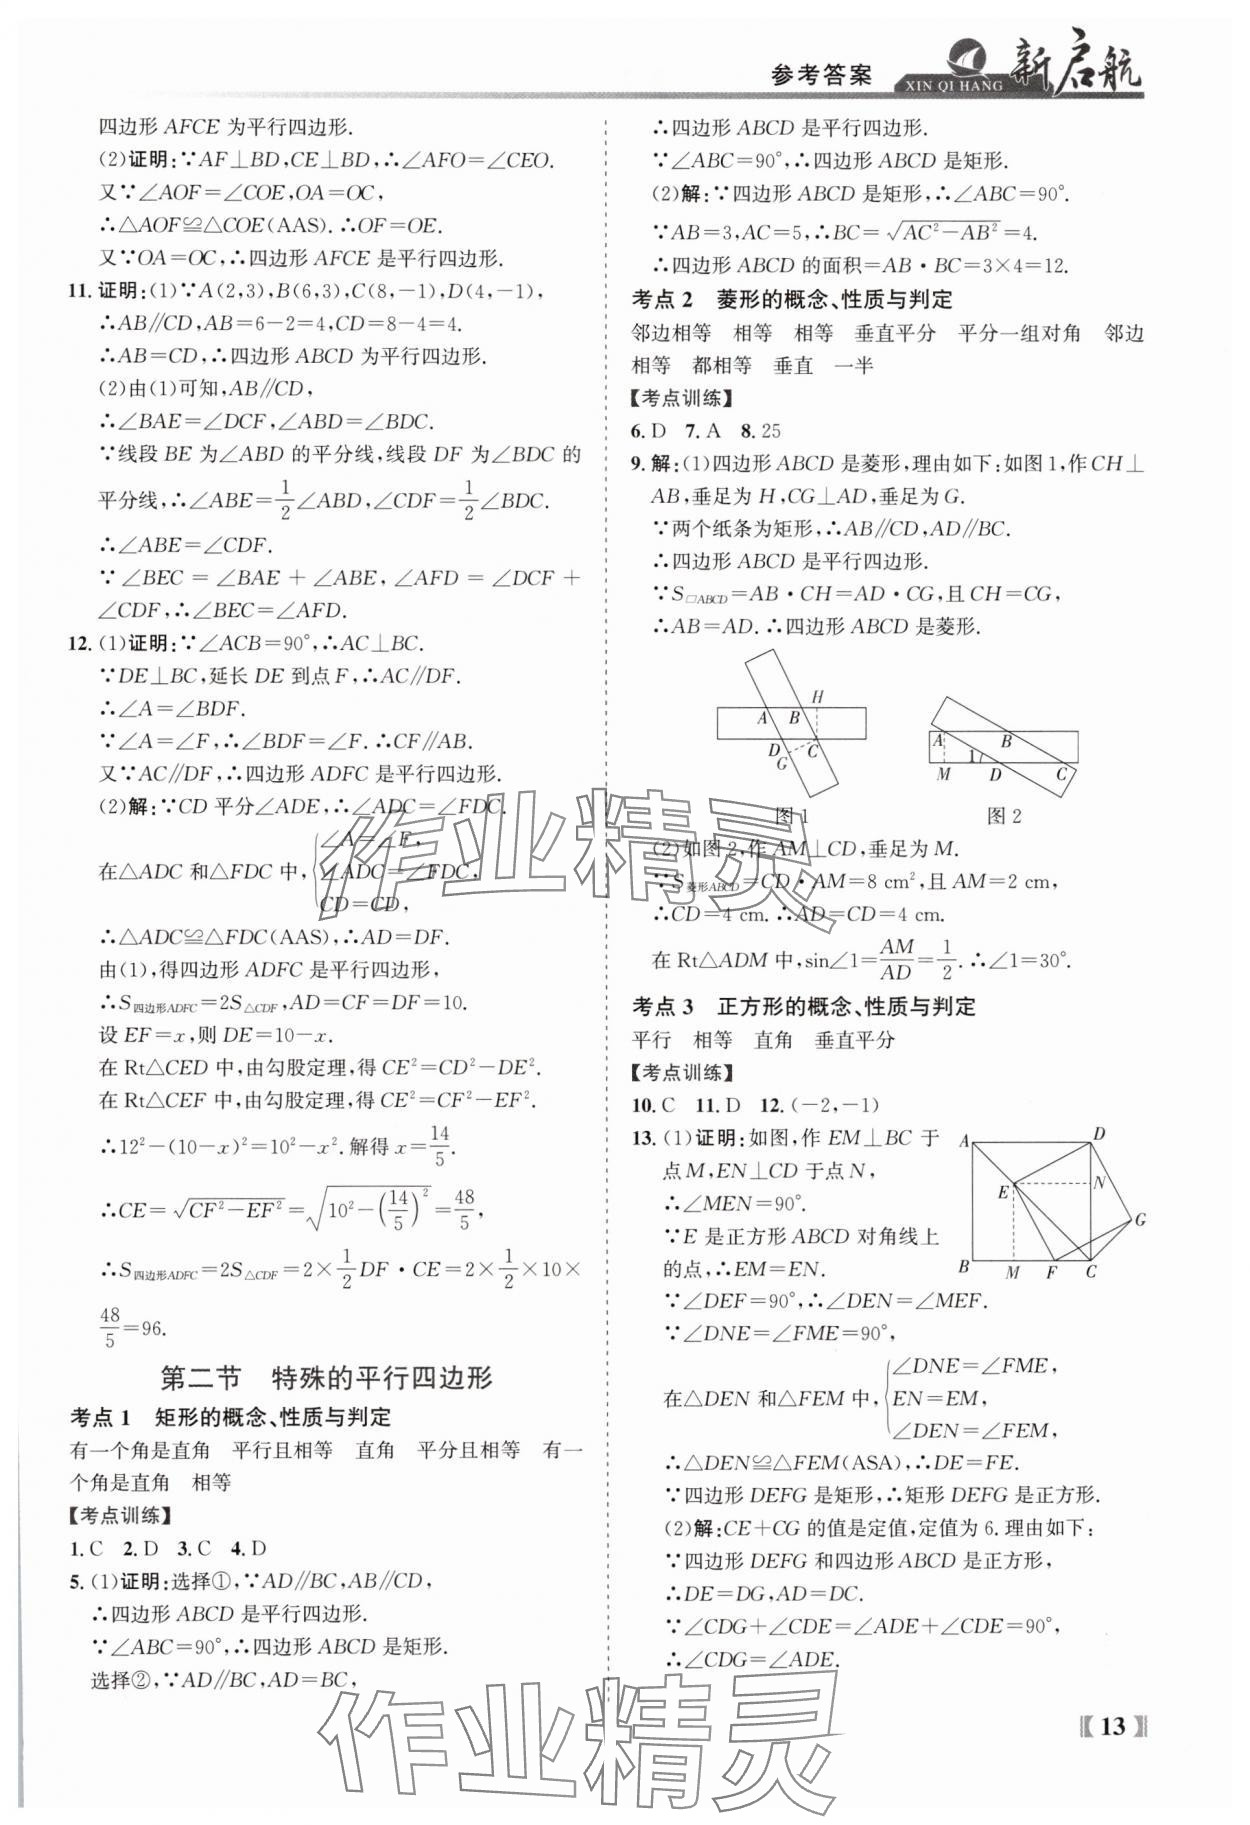 参考答案
XIN QI HANG
新启航
四边形 AFCE 为平行四边形.
(2)证明:∵AF⊥BD,CE⊥BD,∴∠AFO=∠CEO.
又∵∠AOF=∠COE,OA=OC,
∴△AOF≌△COE(AAS).∴OF=OE.
又∵OA=OC,∴四边形 AFCE 是平行四边形.
11.证明:(1)∵A(2,3),B(6,3),C(8,-1),D(4,-1),
∴AB∥CD,AB=6-2=4,CD=8-4=4.
∴AB=CD,∴四边形 ABCD 为平行四边形.
(2)由(1)可知,AB∥CD,
∴∠BAE=∠DCF,∠ABD=∠BDC.
∵线段 BE 为∠ABD 的平分线,线段 DF 为∠BDC 的
平分线,∴∠ABE=1/2∠ABD,∠CDF=1/2∠BDC.
∴∠ABE=∠CDF.
∵∠BEC=∠BAE+∠ABE,∠AFD=∠DCF+
∠CDF,∴∠BEC=∠AFD.
12.(1)证明:∵∠ACB=90°,∴AC⊥BC.
∵DE⊥BC,延长 DE 到点 F,∴AC∥DF.
∴∠A=∠BDF.
∵∠A=∠F,∴∠BDF=∠F.∴CF∥AB.
又∵AC∥DF,∴四边形 ADFC 是平行四边形.
(2)解:∵CD 平分∠ADE,∴∠ADC=∠FDC.
在△ADC 和△FDC 中,{∠A=∠F,
∠ADC=∠FDC,
CD=CD,
∴△ADC≌△FDC(AAS),∴AD=DF.
由(1),得四边形 ADFC 是平行四边形,
∴S四边形ADFC=2S△CDF,AD=CF=DF=10.
设 EF=x,则 DE=10-x.
在 Rt△CED 中,由勾股定理,得 CE²=CD²-DE².
在 Rt△CEF 中,由勾股定理,得 CE²=CF²-EF².
∴12²-(10-x)²=10²-x².解得 x=14/5.
∴CE=√(CF²-EF²)=√(10²-(14/5)²)=48/5,
∴S四边形ADFC=2S△CDF=2×1/2DF·CE=2×1/2×10×
48/5=96.
第二节 特殊的平行四边形
考点 1 矩形的概念、性质与判定
有一个角是直角 平行且相等 直角 平分且相等 有一
个角是直角 相等
【考点训练】
1.C 2.D 3.C 4.D
5.(1)证明:选择①,∵AD∥BC,AB∥CD,
∴四边形 ABCD 是平行四边形.
∵∠ABC=90°,∴四边形 ABCD 是矩形.
选择②,∵AD∥BC,AD=BC,
∴四边形 ABCD 是平行四边形.
∵∠ABC=90°,∴四边形 ABCD 是矩形.
(2)解:∵四边形 ABCD 是矩形,∴∠ABC=90°.
∵AB=3,AC=5,∴BC=√(AC²-AB²)=4.
∴四边形 ABCD 的面积=AB·BC=3×4=12.
考点 2 菱形的概念、性质与判定
邻边相等 相等 相等 垂直平分 平分一组对角 邻边
相等 都相等 垂直 一半
【考点训练】
6.D 7.A 8.25
9.解:(1)四边形 ABCD 是菱形,理由如下:如图1,作 CH⊥
AB,垂足为 H,CG⊥AD,垂足为 G.
∵两个纸条为矩形,∴AB∥CD,AD∥BC.
∴四边形 ABCD 是平行四边形.
∵S▱ABCD=AB·CH=AD·CG,且 CH=CG,
∴AB=AD.∴四边形 ABCD 是菱形.
H
A B
D C
G
图1
A B
1
M D C
图2
(2)如图2,作 AM⊥CD,垂足为 M.
∵S菱形ABCD=CD·AM=8 cm²,且 AM=2 cm,
∴CD=4 cm.∴AD=CD=4 cm.
在 Rt△ADM 中,sin∠1=AM/AD=1/2.∴∠1=30°.
考点 3 正方形的概念、性质与判定
平行 相等 直角 垂直平分
【考点训练】
10.C 11.D 12.(-2,-1)
13.(1)证明:如图,作 EM⊥BC 于
点 M,EN⊥CD 于点 N,
∴∠MEN=90°.
∵E 是正方形 ABCD 对角线上
的点,∴EM=EN.
A D
E N
G
B M F C
∵∠DEF=90°,∴∠DEN=∠MEF.
∵∠DNE=∠FME=90°,
在△DEN 和△FEM 中,{∠DNE=∠FME,
EN=EM,
∠DEN=∠FEM,
∴△DEN≌△FEM(ASA),∴DE=FE.
∵四边形 DEFG 是矩形,∴矩形 DEFG 是正方形.
(2)解:CE+CG 的值是定值,定值为 6.理由如下:
∵四边形 DEFG 和四边形 ABCD 是正方形,
∴DE=DG,AD=DC.
∵∠CDG+∠CDE=∠ADE+∠CDE=90°,
∴∠CDG=∠ADE.
作业精灵
作业精灵
【13】